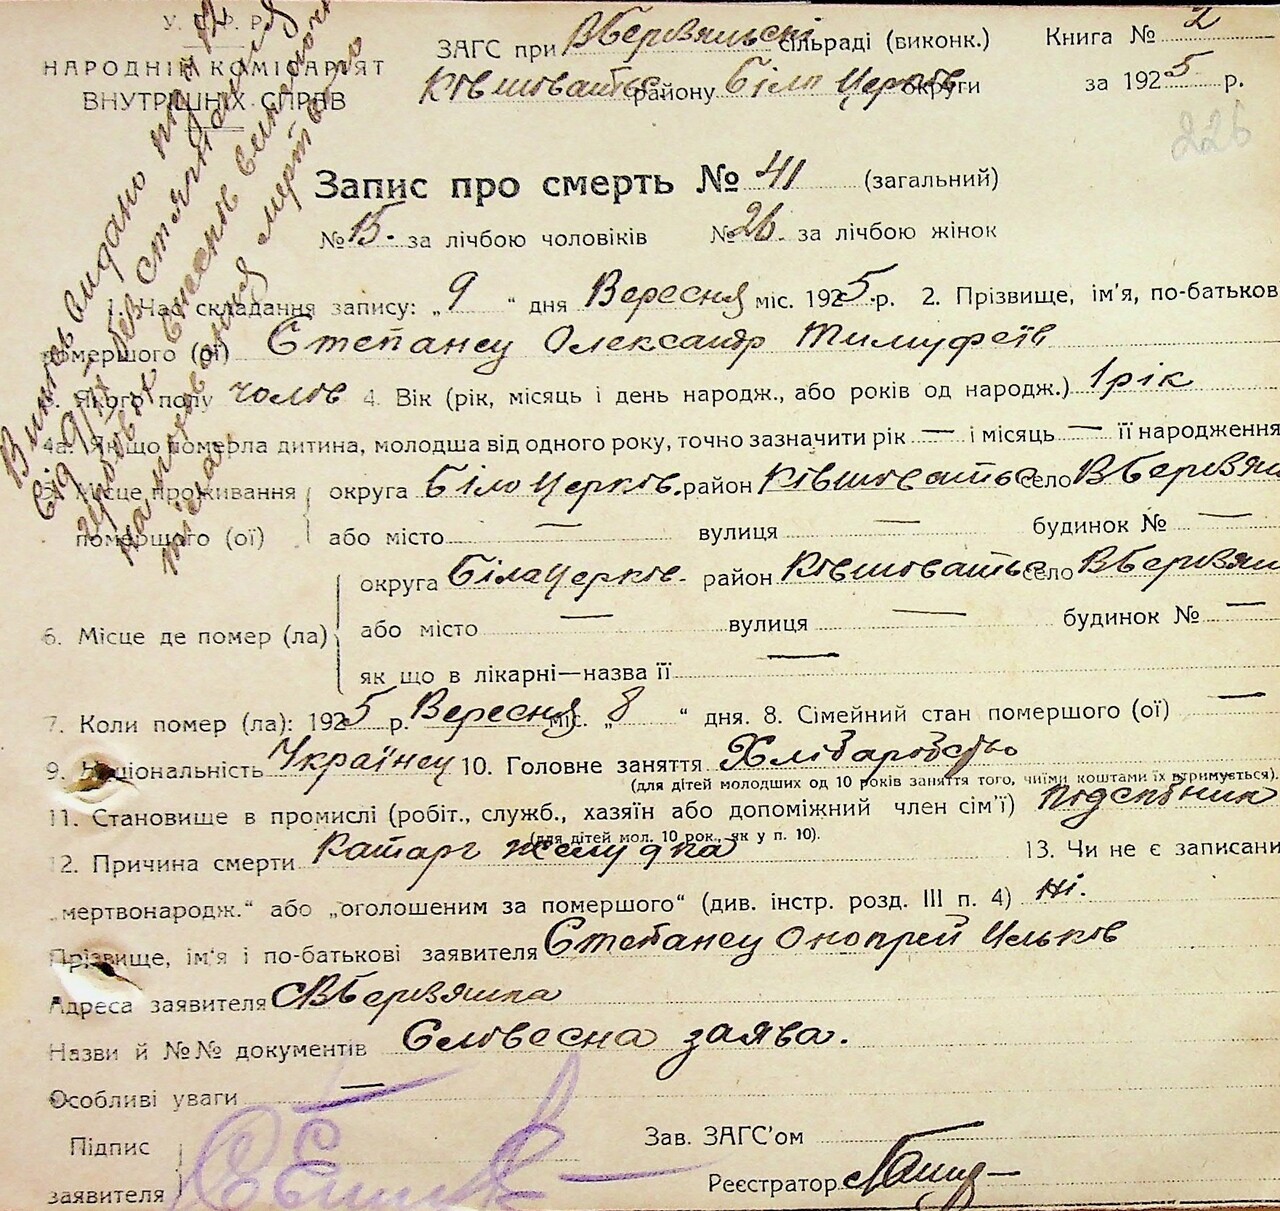 У. С. Р. Р.
НАРОДНІЙ КОМІСАРІЯТ
ВНУТРІШНІХ СПРАВ
ЗАГС при В Березянські сільраді (виконк.) Книга № 2
Ківшоватськ району Біло Церков округи за 1925 р.
226
Запис про смерть № 41 (загальний)
№ 15. за лічбою чоловіків № 26. за лічбою жінок
1. Час складання запису: „ 9 “ дня Вересня міс. 1925 р. 2. Прізвище, ім'я, по-батькові
помершого (ої) Степанец Олександр Тимуфеїв
3. Якого полу чолов 4. Вік (рік, місяць і день народж., або років од народж.) 1 рік
4а. Якщо померла дитина, молодша від одного року, точно зазначити рік — і місяць — її народження
5. Місце проживання округа Біло Церков. район Ківшоватськ село В Березян
помершого (ої) або місто — вулиця — будинок № —
округа Біла Церков. район Ківшоватськ село В Березян
6. Місце де помер (ла) або місто — вулиця — будинок № —
як що в лікарні—назва її —
7. Коли помер (ла): 1925 р. Вересня міс. „ 8 “ дня. 8. Сімейний стан помершого (ої) —
9. Національність Українец 10. Головне заняття Хліборобство
(для дітей молодших од 10 років заняття того, чиїми коштами їх втримується).
11. Становище в промислі (робіт., служб., хазяїн або допоміжний член сім'ї) підспічник
(для дітей мол. 10 рок., як у п. 10).
12. Причина смерти Катарг желудка 13. Чи не є записаний
„мертвонародж.“ або „оголошеним за помершого“ (див. інстр. розд. III п. 4) Ні.
Прізвище, ім'я і по-батькові заявителя Степанец Онопрей Ильков
Адреса заявителя С В Березянка
Назви й №№ документів Словесна заява.
Особливі уваги —
Підпис
заявителя
Зав. ЗАГС'ом
Реєстратор